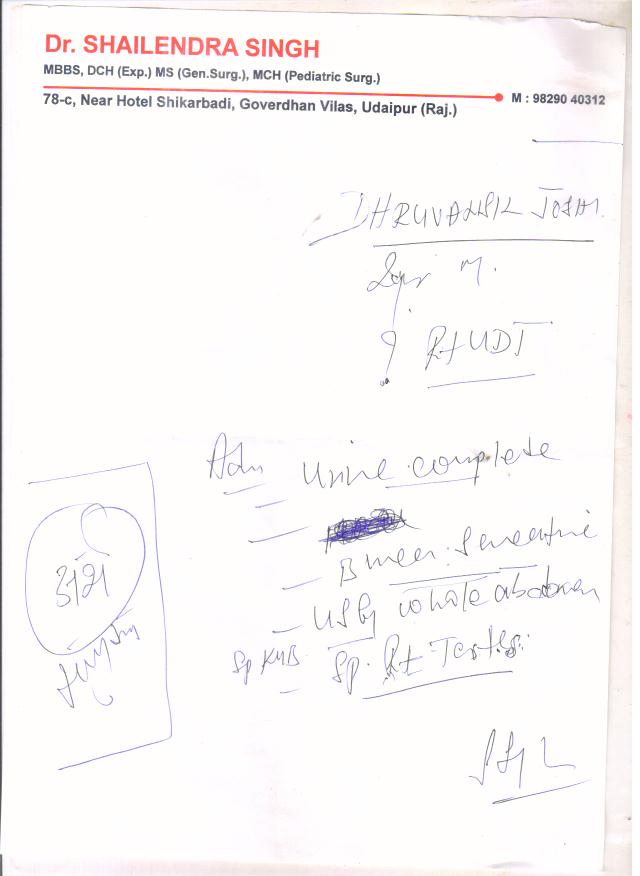 Dr. SHAILENDRA SINGH
MBBS, DCH (Exp.) MS (Gen.Surg.), MCH (Pediatric Surg.)
78-c, Near Hotel Shikarbadi, Goverdhan Vilas, Udaipur (Raj.)
M : 98290 40312
JOSHI
M.
? Rt UDT
Adv Urine complete
B
USG whole abdomen
Sp KUB Sp. Rt Testes